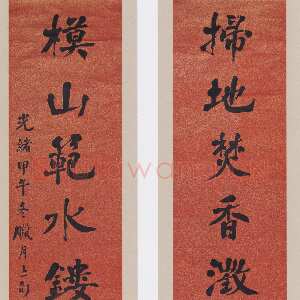 掃地焚香澂
模山範水鏤
光緒甲午冬臘月上